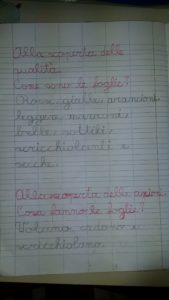 Alla scoperta delle
qualità.
Come sono le foglie?
Rosse, gialle, arancioni,
leggere, marroni,
belle, sottili,
scricchiolanti e
secche.
Alla scoperta delle azioni.
Cosa fanno le foglie?
Volano, cadono e
scricchiolano.